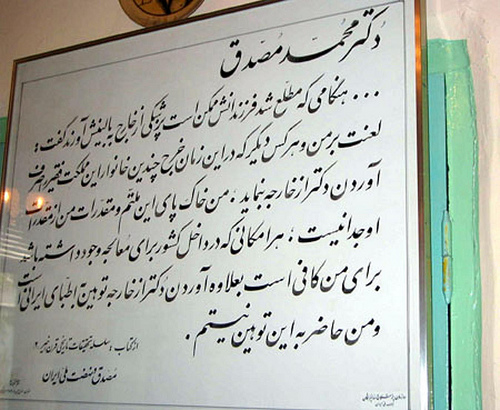 دکتر محمد مصدق
... هنگامی که مطلع شد فرزندانش ممکن است پزشکی از خارج به بالینش آورند گفت :
لعنت بر من و هر کس دیگر که در این زمان خرج چندین خانوار این مملکت فقیر را صرف
آوردن دکتر از خارجه نماید ، من خاک پای این ملتم و مقدرات من از مقدرات
او جدا نیست ، هر امکانی که در داخل کشور برای معالجه وجود داشته باشد
برای من کافی است بعلاوه آوردن دکتر از خارجه توهین به اطبای ایرانی است
و من حاضر به این توهین نیستم .
از کتاب : سلسله تحقیقات تاریخی قرن اخیر ۲
مصدق و نهضت ملی ایران